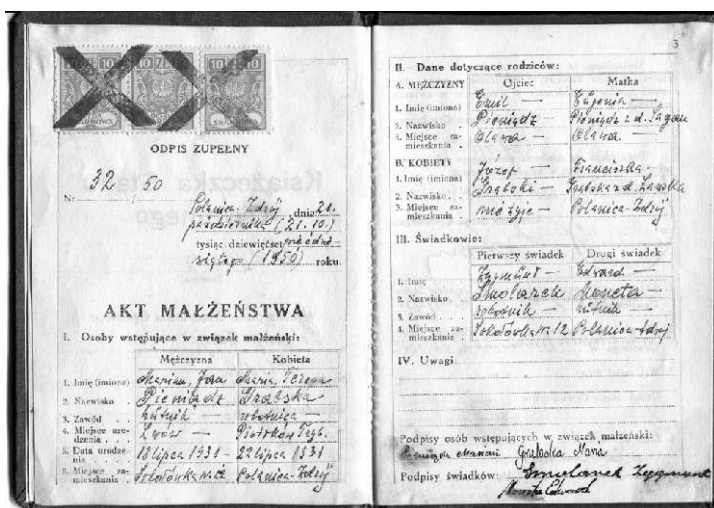 ODPIS ZUPEŁNY
Nr 32/50
Polanica Zdrój, dnia 21.
października (21.10.)
tysiąc dziewięćset pięćdzie-
siątego (1950) roku.
AKT MAŁŻEŃSTWA
I. Osoby wstępujące w związek małżeński:
Mężczyzna Kobieta
1. Imię (imiona) Marian, Jan Maria, Teresa
2. Nazwisko Pieniądz Grabska
3. Zawód hutnik robotnica —
4. Miejsce uro-
dzenia Lwów — Piotrków Tryb.
5. Data urodze-
nia 18 lipca 1931 - 22 lipca 1931
6. Miejsce za-
mieszkania Sokołówka 12 Polanica-Zdrój
3
II. Dane dotyczące rodziców:
A. MĘŻCZYZNY Ojciec Matka
1. Imię (imiona) Emil — Eugenia —
2. Nazwisko Pieniądz - Pieniądz z d.
3. Miejsce za-
mieszkania Oława — Oława —
B. KOBIETY
1. Imię (imiona) Józef — Franciszka -
2. Nazwisko Grabski - Grabska z d.
3. Miejsce za-
mieszkania nie żyje — Polanica-Zdrój
III. Świadkowie:
Pierwszy świadek Drugi świadek
1. Imię Zygmunt — Edward —
2. Nazwisko Smolarek Moneta —
3. Zawód robotnik — hutnik —
4. Miejsce za-
mieszkania Sokołówka 12 Polanica-Zdrój
IV. Uwagi:
Podpisy osób wstępujących w związek małżeński:
Pieniądz Marian Grabska Maria
Podpisy świadków: Smolarek Zygmunt
Moneta Edward